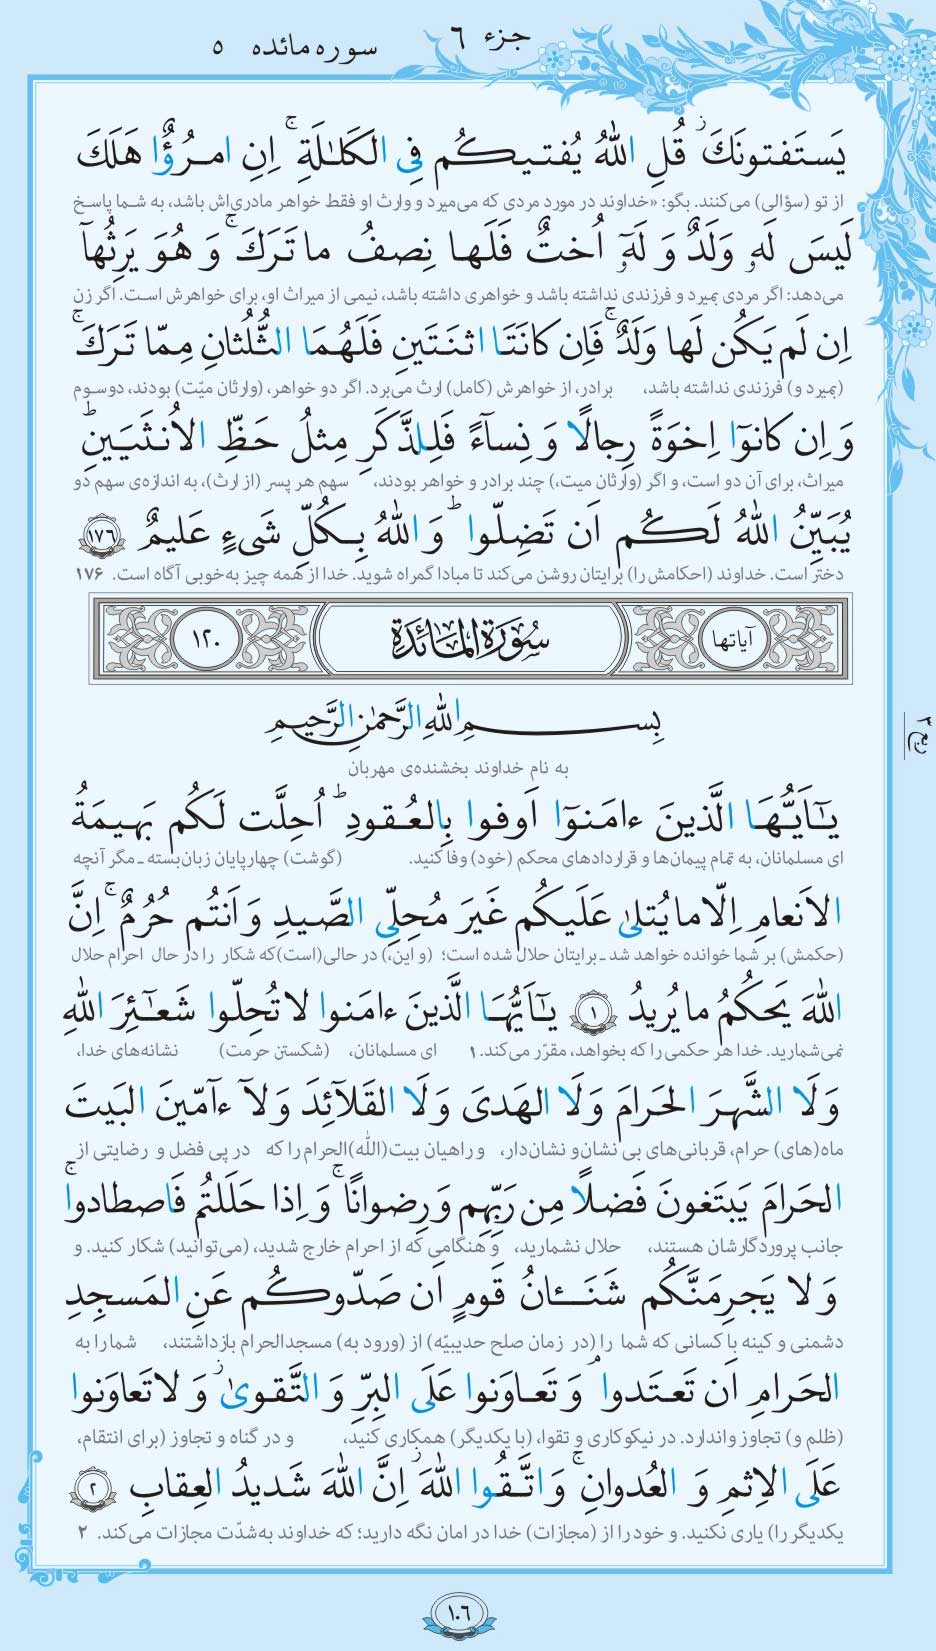 جزء ۶
سوره مائده ۵
يَستَفتونَكَ ۖ قُلِ اللّٰهُ يُفتيكُم فِى الكَلٰلَةِ ۚ اِنِ امرُؤٌا هَلَكَ
از تو (سؤالی) می‌کنند. بگو: «خداوند در مورد مردی که می‌میرد و وارث او فقط خواهر مادری‌اش باشد، به شما پاسخ
لَيسَ لَهٗ وَلَدٌ وَ لَهٗٓ اُختٌ فَلَها نِصفُ ما تَرَكَ ۚ وَ هُوَ يَرِثُهآ
می‌دهد: اگر مردی بمیرد و فرزندی نداشته باشد و خواهری داشته باشد، نیمی از میراث او، برای خواهرش است. اگر زن
اِن لَم يَكُن لَها وَلَدٌ ۚ فَاِن كانَتَا اثنَتَينِ فَلَهُمَا الثُّلُثانِ مِمّا تَرَكَ ۚ
(بمیرد و) فرزندی نداشته باشد، برادر، از خواهرش (کامل) ارث می‌برد. اگر دو خواهر، (وارثان میّت) بودند، دوسوم
وَ اِن كانوٓا اِخوَةً رِجالًا وَ نِسآءً فَلِلذَّكَرِ مِثلُ حَظِّ الاُنثَيَينِ ؕ
میراث، برای آن دو است، و اگر (وارثان میت،) چند برادر و خواهر بودند، سهم هر پسر (از ارث)، به اندازه‌ی سهم دو
يُبَيِّنُ اللّٰهُ لَكُم اَن تَضِلّوا ؕ وَ اللّٰهُ بِكُلِّ شَىءٍ عَليمٌ ۱۷۶
دختر است. خداوند (احکامش را) برایتان روشن می‌کند تا مبادا گمراه شوید. خدا از همه چیز به‌خوبی آگاه است. ۱۷۶
آیاتها سُورَةُ المَائِدَةِ ۱۲۰
ربع ۲
بِسمِ اللّٰهِ الرَّحمٰنِ الرَّحيمِ
به نام خداوند بخشنده‌ی مهربان
يٰٓاَيُّهَا الَّذينَ ءامَنوٓا اَوفوا بِالعُقودِ ؕ اُحِلَّت لَكُم بَهيمَةُ
ای مسلمانان، به تمام پیمان‌ها و قراردادهای محکم (خود) وفا کنید. (گوشت) چهارپایان زبان‌بسته ـ مگر آنچه
الاَنعامِ اِلّا ما يُتلىٰ عَلَيكُم غَيرَ مُحِلِّى الصَّيدِ وَ اَنتُم حُرُمٌ ۚ اِنَّ
(حکمش) بر شما خوانده خواهد شد ـ برایتان حلال شده است؛ (و این،) در حالی(است)که شکار را در حال احرام حلال
اللّٰهَ يَحكُمُ ما يُريدُ ۱ يٰٓاَيُّهَا الَّذينَ ءامَنوا لا تُحِلّوا شَعٰٓئِرَ اللّٰهِ
نمی‌شمارید. خدا هر حکمی را که بخواهد، مقرّر می‌کند. ۱ ای مسلمانان، (شکستن حرمت) نشانه‌های خدا،
وَلَا الشَّهرَ الحَرامَ وَلَا الهَدىَ وَلَا القَلآئِدَ وَ لآ ءآمّينَ البَيتَ
ماه(های) حرام، قربانی‌های بی نشان و نشان‌دار، و راهیان بیت(الله)الحرام را که در پی فضل و رضایتی از
الحَرامَ يَبتَغونَ فَضلًا مِن رَبِّهِم وَ رِضوانًا ۚ وَ اِذا حَلَلتُم فَاصطادوا ۚ
جانب پروردگارشان هستند، حلال نشمارید، و هنگامی که از احرام خارج شدید، (می‌توانید) شکار کنید. و
وَ لا يَجرِمَنَّكُم شَنَـٔانُ قَومٍ اَن صَدّوكُم عَنِ المَسجِدِ
دشمنی و کینه با کسانی که شما را (در زمان صلح حدیبیّه) از (ورود به) مسجدالحرام بازداشتند، شما را به
الحَرامِ اَن تَعتَدوا ۘ وَ تَعاوَنوا عَلَى البِرِّ وَ التَّقوىٰ ۖ وَ لا تَعاوَنوا
(ظلم و) تجاوز واندارد. در نیکوکاری و تقوا، (با یکدیگر) همکاری کنید، و در گناه و تجاوز (برای انتقام،
عَلَى الاِثمِ وَ العُدوانِ ۚ وَ اتَّقُوا اللّٰهَ ۖ اِنَّ اللّٰهَ شَديدُ العِقابِ ۲
یکدیگر را) یاری نکنید. و خود را از (مجازات) خدا در امان نگه دارید؛ که خداوند به‌شدّت مجازات می‌کند. ۲
۱۰۶